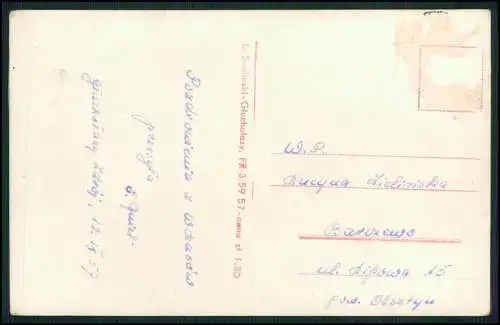 Pozdrowienia z wczasów
przesyła
Głuchołazy Zdrój, 12.IX.57
L. Sieliński-Głuchołazy. PR 3.59 57 - cena zł 1.30
W.P.
Lucyna Zielińska
Barczewo
ul. Lipowa 15
pow. Olsztyn